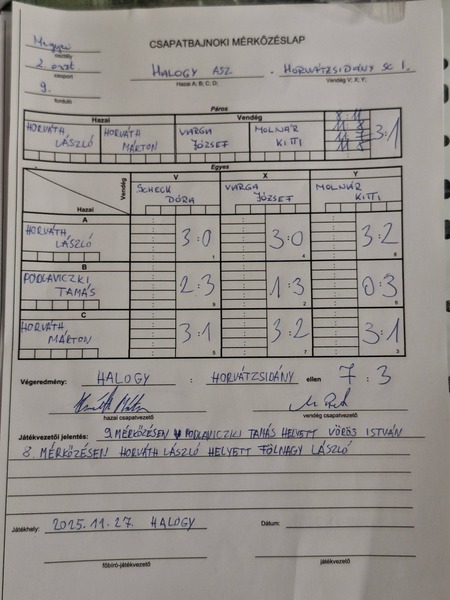 CSAPATBAJNOKI MÉRKŐZÉSLAP
Megyei
osztály
2. oszt.
csoport
9.
forduló
HALOGY ASZ. - HORVÁTZSIDÁNY SC I.
Hazai A; B; C; D;
Vendég V; X; Y;
Páros
Hazai
Vendég
HORVÁTH LÁSZLÓ
HORVÁTH MÁRTON
VARGA JÓZSEF
MOLNÁR KITTI
8:11
11:8
11:7
11:5
3:1
Egyes
Vendég
Hazai
V
SCHECK DÓRA
X
VARGA JÓZSEF
Y
MOLNÁR KITTI
A
HORVÁTH LÁSZLÓ
3:0
3:0
3:2
B
PODLAVICZKI TAMÁS
2:3
1:3
0:3
C
HORVÁTH MÁRTON
3:1
3:2
3:1
Végeredmény: HALOGY : HORVÁTZSIDÁNY ellen 7:3
hazai csapatvezető
vendég csapatvezető
Játékvezetői jelentés: 9. MÉRKŐZÉSEN PODLAVICZKI TAMÁS HELYETT VÖRÖS ISTVÁN
8. MÉRKŐZÉSEN HORVÁTH LÁSZLÓ HELYETT FÖLNAGY LÁSZLÓ
Játékhely: 2025.11.27. HALOGY
Dátum:
főbíró-játékvezető
játékvezető